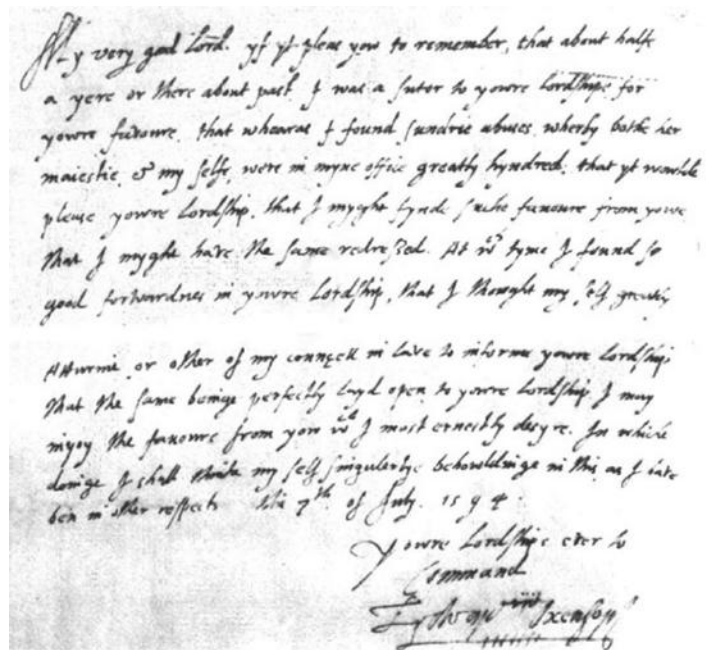 My very good Lord. yf yt pleas yow to remember, that about halfe
a yere or there about past, I was a suter to yowre Lordshipe for
yowre fauoure, that whearas I found sundrie abuses, wherby bothe her
maiestie, & my selfe, were in myne office greatly hyndred; that yt wowlde
please yowre Lordship, that I myght fynde suche fauoure from yowe
that I myght have the same redressed. At wch tyme I found so
good forwardnes in yowre Lordship, that I thowght my self greatly
Atturnie, or other of my conncell in lawe to informe yowre Lordship,
that the same beinge perfectly layd open to yowre Lordship I may
inyoy the fauoure from yow wch I most ernestly desyre. In whiche
doinge I shall thinke my self singulerlye behowldinge in this, as I have
ben in other respects. this 7th of July. 1594.
Yowre Lordships ever to
Command
Edward Oxenford